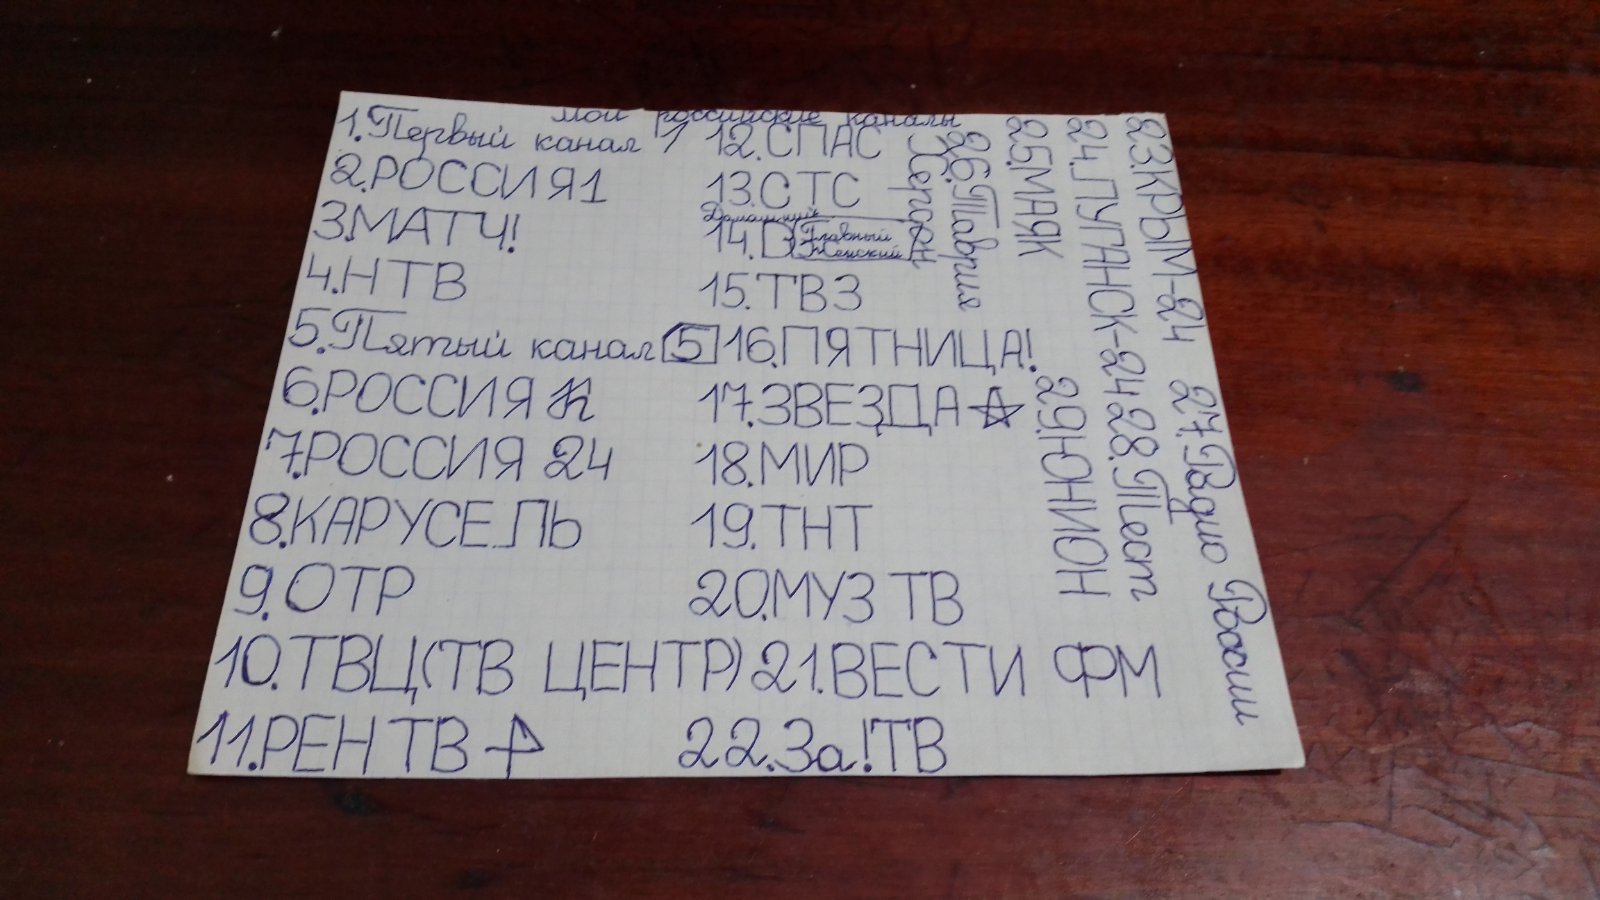 мои российские каналы
1.Первый канал 1
2.РОССИЯ1
3.МАТЧ!
4.НТВ
5.Пятый канал 5
6.РОССИЯ К
7.РОССИЯ 24
8.КАРУСЕЛЬ
9.ОТР
10.ТВЦ(ТВ ЦЕНТР)
11.РЕН ТВ
12.СПАС
13.СТС
Домашний
14.D Главный
Женский
15.ТВ3
16.ПЯТНИЦА!
17.ЗВЕЗДА
18.МИР
19.ТНТ
20.МУЗ ТВ
21.ВЕСТИ ФМ
22.За!ТВ
23.КРЫМ-24
24.ЛУГАНСК-24
25.МАЯК
26.Таврия
Херсон
27.Радио России
28.Тест
29.ЮНИОН